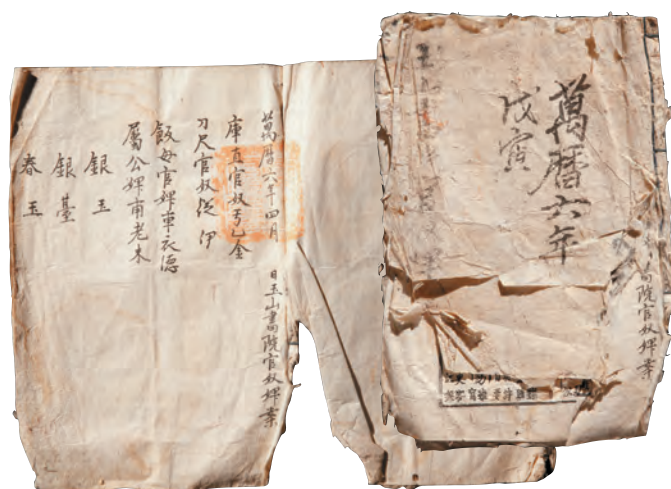 萬曆六年
戊寅
書院官奴婢案
萬曆六年四月 日玉山書院官奴婢案
庫直官奴丐乙金
刀尺官奴從伊
飯母官婢車衣德
屬公婢甫老木
銀玉
銀臺
春玉